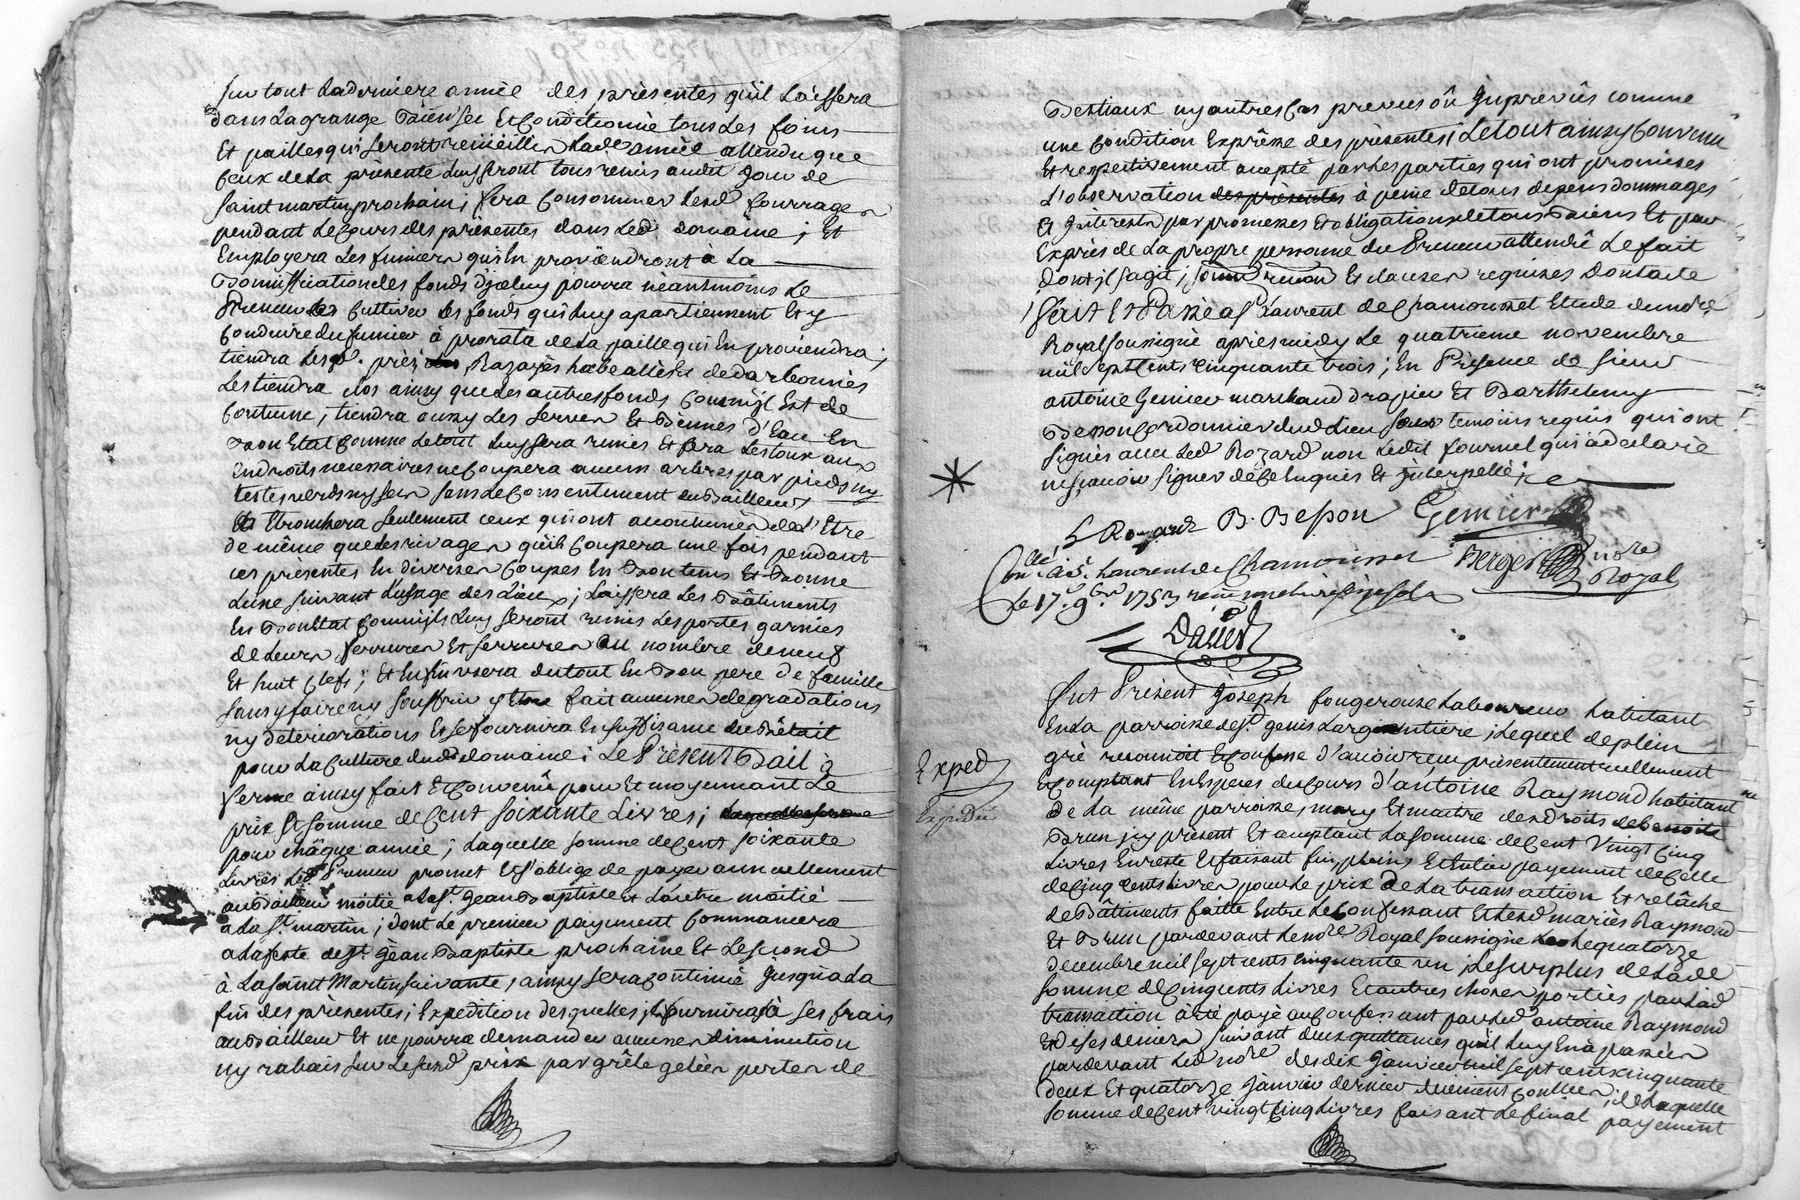 sur tout la derniere année des présentes qu'il laissera
dans la grange bien sec et conditionné tous les foins
et pailles qui seront recüeillis lad.e année attendu que
ceux de la présente luy seront tous remis audit jour de
saint martin prochain ; fera consommer lesd fourrages
pendant le cours des présentes dans led. domaine ; et
employera les fumiers qui en proviendront à la
bonniffication des fonds d'jceluy pourra néantmoins le
preneur cultiver les fonds qui luy apartiennent et y
conduire du fumier à prorata de la paille qui en proviendra ;
tiendra lesd. prés Razayés herbealiés et dedarbonnés
les tiendra clos ainsy que les autres fonds comm'jl est de
coutume, tiendra aussy les serves et biennes d'eau en
bon etat comme le tout luy sera remis et fera les toux aux
endroits necessaires ne coupera aucuns arbres par pieds ny
testes verds ny secs sans le consentement du bailleur
et etronchera seulement ceux qui ont accoutumés de l'etre
de même que les rivages qu'il coupera une fois pendant
ces présentes en diverses coupes en bon tems et bonne
lune suivant l'usage des lieux ; laissera les bâtiments
en bon etat comm'jls luy seront remis les portes garnies
de leurs serrures et ferrures au nombre de neuf
et huit clefs ; et enfin usera du tout en bon pere de famille
sans y faire ny souffrir y etre fait aucunes dégradations
ny détériorations et se fournira en suffisance du bêtail
pour la culture dud. domaine ; Le Présent Bail à
ferme ainsy fait et convenû pour et moyennant le
prix et somme de cent soixante livres ; laquelle somme
pour châque année ; laquelle somme de cent soixante
livres led. Preneur promet et s'oblige de payer annuellement
au bailleur moitié a la st. jean baptiste et l'autre moitié
a la st. martin ; dont le premier payement commancera
a la feste de st. jéan baptiste prochaine et le second
à la saint Martin suivante, ainsy sera continué jusqu'a la
fin des présentes ; Expedition desquelles jl fournira à ses frais
au bailleur et ne pourra demander aucunes diminution
ny rabais sur le susd. prix par grêle gelées pertes de
bestiaux ny autres cas prevus où jmprevûs comme
une condition Exprêsse des présentes, Le tout ainsy convenû
et respectivement accepté par les parties qui ont promises
l'observation des présentes à peine de tous depens dommages
et jnterests par promesses et obligations de tous biens et par
exprès de la propre personne du Preneur attendû le fait
dont jl s'agit ; soum renon et clauses requises dont acte
Fait et Passé a st Laurent de Chamousset etude du nore
Royal soussigné après midy le quatrieme novembre
mil sept cents cinquante trois ; En Présence de sieur
antoine Genieu marchand drapier et Barthelemy
Besson cordonnier dud. lieu temoins requis qui ont
signés avec led Rozard non ledit fournel qui a declaré
ne sçavoir signer de ce enquis et jnterpellé ;
B. Besson Genieu
Conllé. à st. Laurent de Chamousset Berger nore Royal
le 17e. 9bre 1753
fut Présent Joseph fougerouse laboureur habitant
en la parroisse de st. genis L'argentiere ; lequel de plein
gré reconnoit et confesse d'avoir reçu présentement réellement
Exped
Comptant en Especes du cours d'antoine Raymond habitant
Expédié
de la même parroisse, mary et maitre des droits de benoite
Brun jcy présent et acceptant la somme de cent vingt cinq
livres en reste et faisant fin, plains et entier payement de celle
de cinq cents livres pour le prix de la transaction et relâche
de bâtiments faitte entre le confessant et lesd mariés Raymond
et Brun pardevant le nore. Royal soussigné le quatorze
decembre mil sept cents cinquante un ; le surplus de lade
somme de cinq cents livres et autres choses portées par lad
transaction à été payé au confessant par led antoine Raymond
et de ses deniers suivant deux quittances qu'il luy en à passées
pardevant led nore des dix janvier mil sept cent cinquante
deux et quatorze janvier dernier düement conllées ; de laquelle
somme de cent vingt cinq livres faisant le final payement